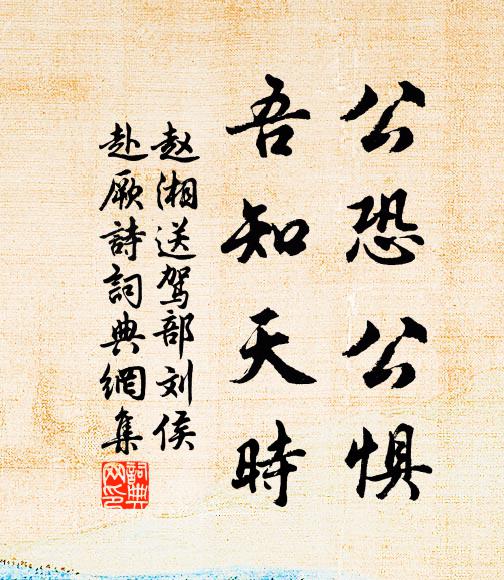 公恐公惧
吾知天時
赵湘送驾部刘侯
赴厥詩詞典網集
詞典
网印